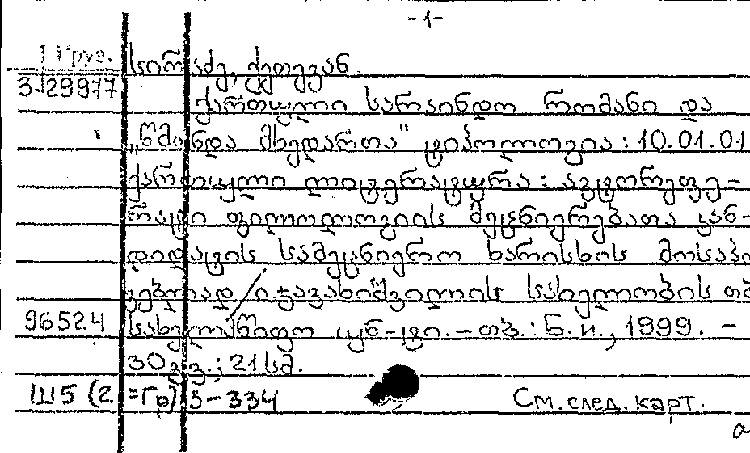 -1-
1 Груз. სირაძე, ქეთევან
3-29977
ქართული სარაინდო რომანი და
„წმინდა მხედართა" ტიპოლოგია : 10.01.01
ქართული ლიტერატურა : ავტორეფე-
რატი ფილოლოგიის მეცნიერებათა კან-
დიდატის სამეცნიერო ხარისხის მოსაპო
ვებლად / ი. ჯავახიშვილის სახელობის თბ
96524 სახელმწიფო უნ-ტი. - თბ. : Б. и., 1999. -
30 გვ. ; 21 სმ.
Ш5 (2=Гр) 3-334 См. след. карт.